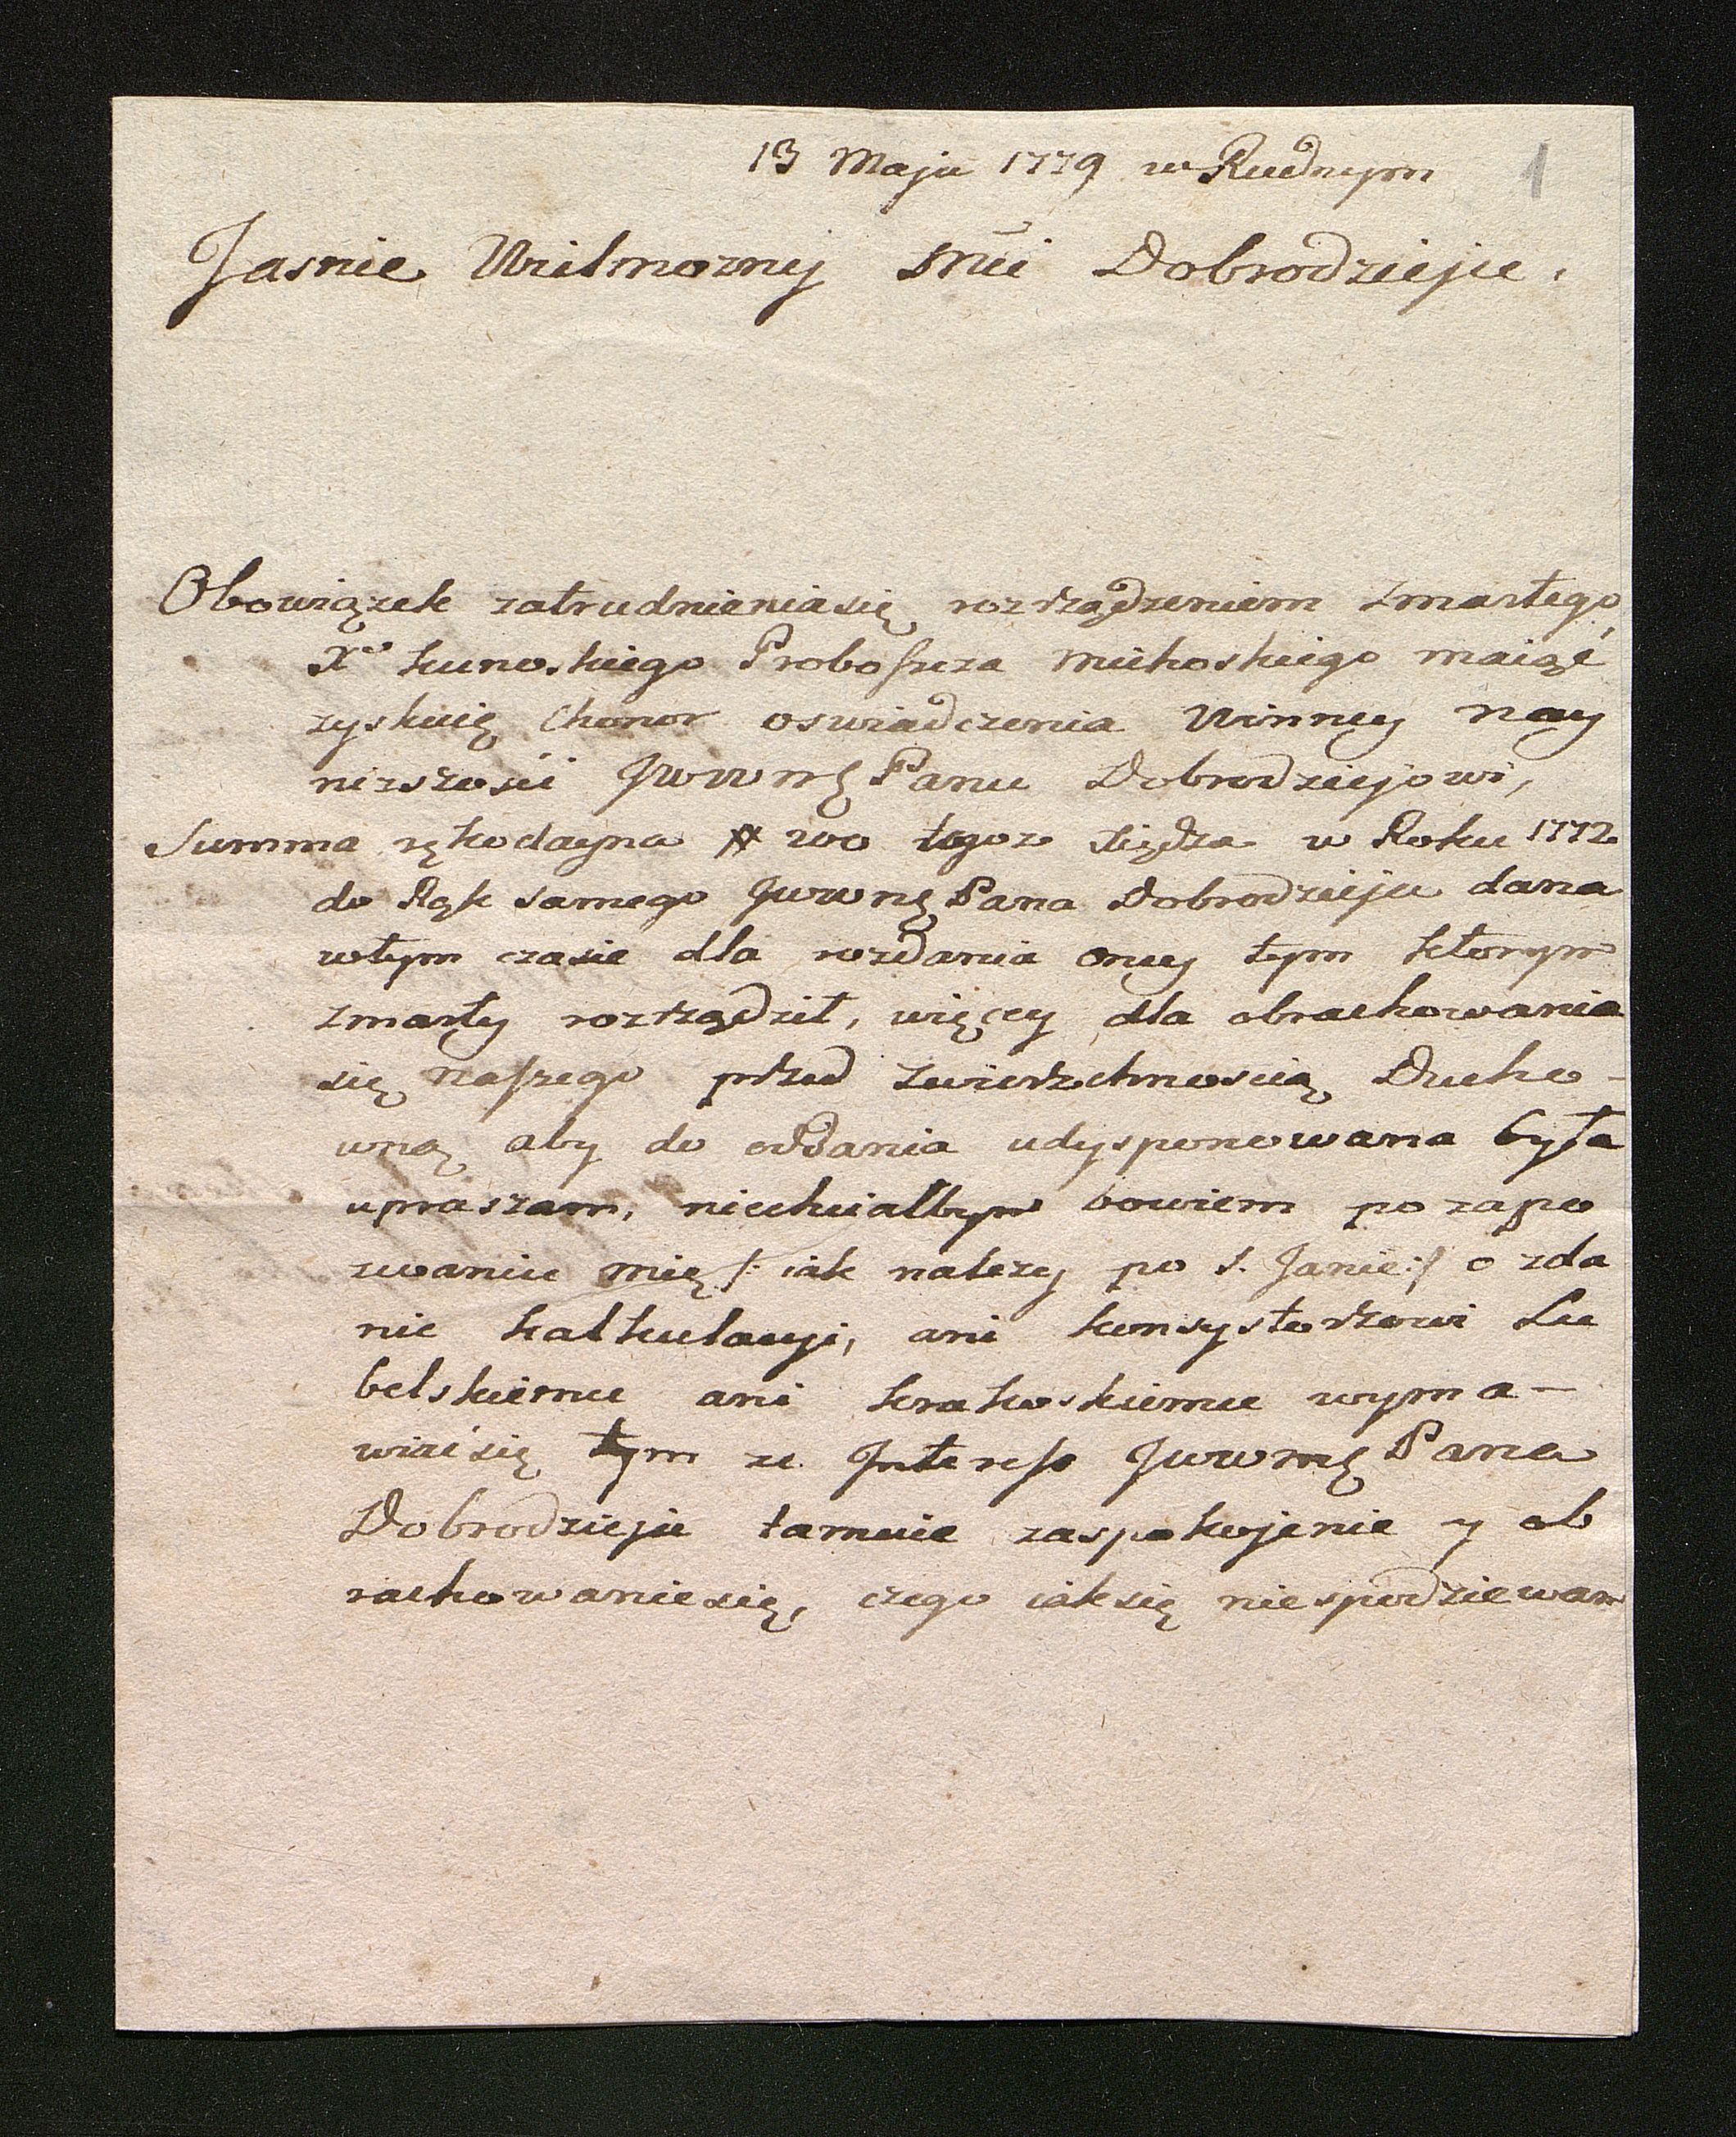 13 Maja 1779 w Rudnym 1
Jasnie Wielmozny Mci Dobrodzieju.
Obowiązek zatrudnieniasię rozrządzeniem zmarłego
Xa kunoskiego Proboszcza maiąć
zyskuię Chonor oswiadczenia Winney nay
nizszości JWWMę Panu Dobrodziejowi,
Summa rękodayna # 200 tegoz Xiędza w Roku 1772
do Rąk samego JWWMę Pana Dobrodzieju dana
wtym czasie dla rozdania oney tym ktorym
zmarły rozrządził, więcey dla obrachowania
się naszego przed zwierzchnoscią Ducho-
wną aby do oddania udysponowana była
upraszam, niechciałbym bowiem po zapo
zwaniu mię /: iak nalezy po S. Janie :/ o zda
nie kalkulacyi, ani konsystorzowi Lu
belskiemu ani krakoskiemu wyma-
wiać się tym ze Interess JWWMę Pana
Dobrodzieju tamuie zaspokojenie y ob
rachowaniesię, czego iaksię niespodziewam